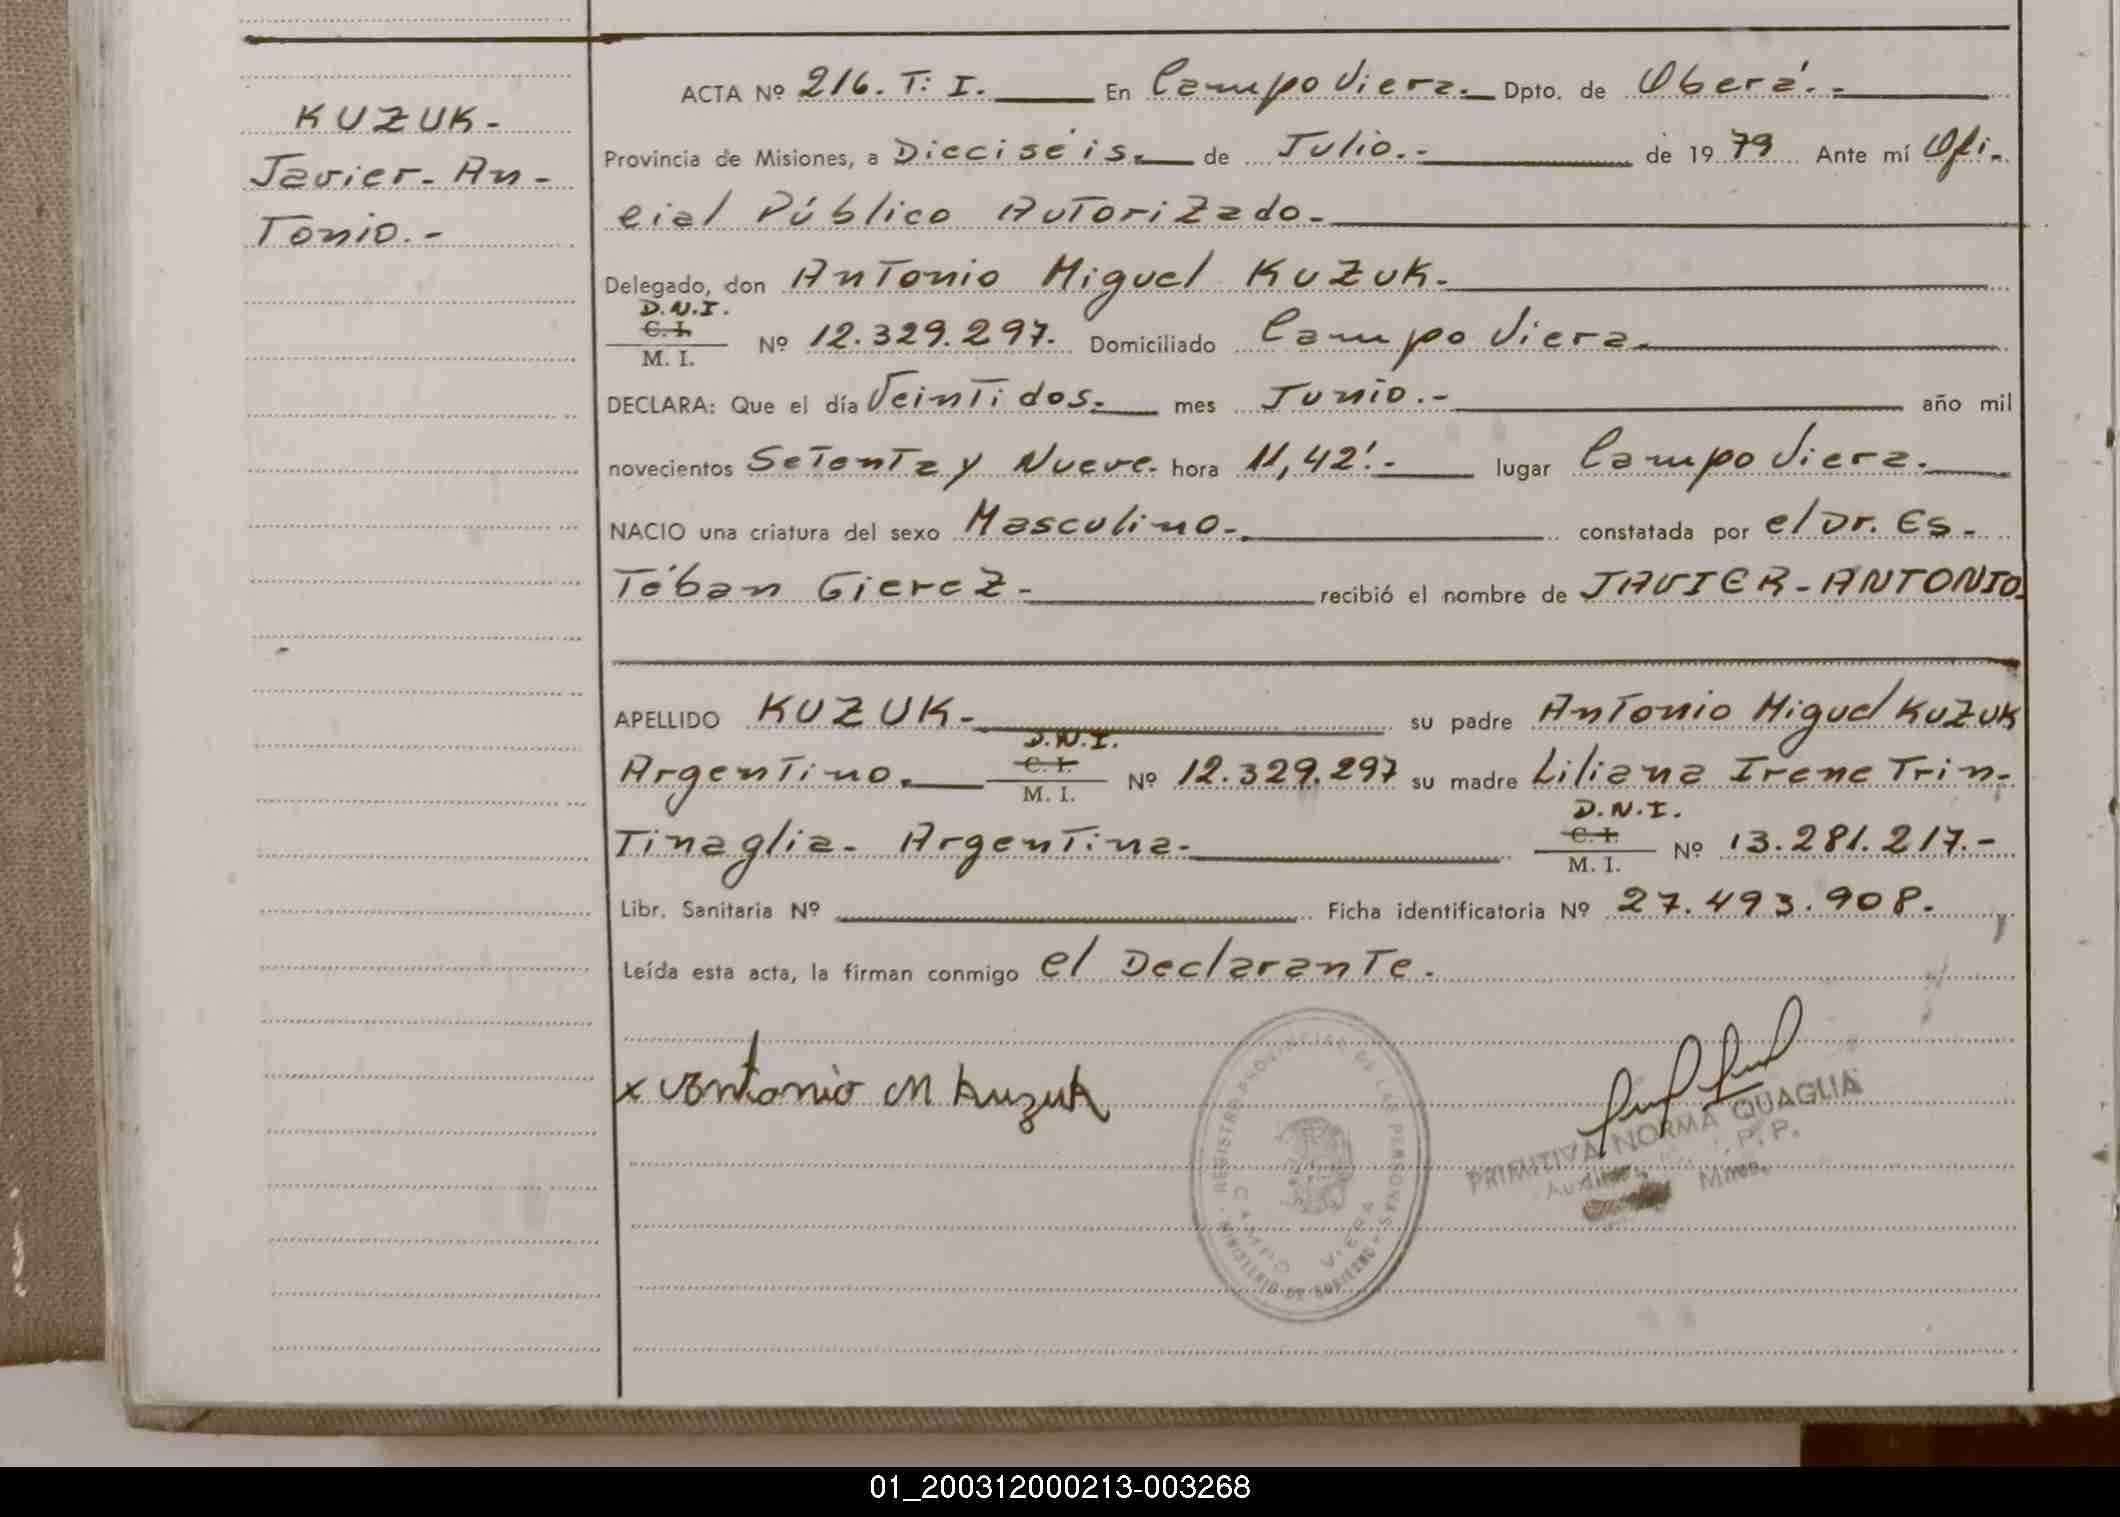 KUZUK-
Javier-An-
Tonio.-
ACTA Nº 216. T: I. En Campo Viera. Dpto. de Oberá.-
Provincia de Misiones, a Dieciséis. de Julio.- de 1979 Ante mí Ofi-
cial Público Autorizado.
Delegado, don Antonio Miguel KUZUK.
D.N.I.
C. I.
M. I. Nº 12.329.297. Domiciliado Campo Viera.
DECLARA: Que el día Veintidos. mes Junio.- año mil
novecientos Setenta y Nueve. hora 11,42'.- lugar Campo Viera.
NACIO una criatura del sexo Masculino. constatada por el Dr. Es-
Téban Gierez- recibió el nombre de JAVIER-ANTONIO.
APELLIDO KUZUK- su padre Antonio Miguel KUZUK
D.N.I.
C. I.
Argentino. M. I. Nº 12.329.297 su madre Liliana Irene Trin-
D.N.I.
C. I.
Tinaglia- Argentina. M. I. Nº 13.281.217.-
Libr. Sanitaria Nº Ficha identificatoria Nº 27.493.908.
Leída esta acta, la firman conmigo el Declarante.
x Antonio M Kuzuk
REGISTRO PROVINCIAL DE LAS PERSONAS
MINISTERIO DE GOBIERNO
CAMPO VIERA
PRIMITIVA NORMA QUAGLIA
P.P.
Mnes.
01_200312000213-003268